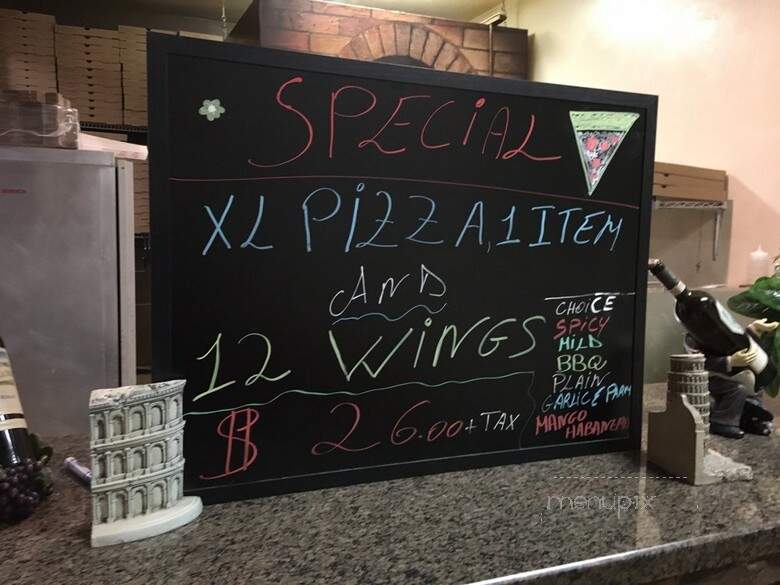 SPECiAL
XL PiZZA, 1 ITEM
AND
12 WiNGS
$ 26.00 + TAX
CHOiCE
SPiCY
MiLD
BBQ
PLAiN
GARLiC & PARM
MANGO
HABANERO
menupix